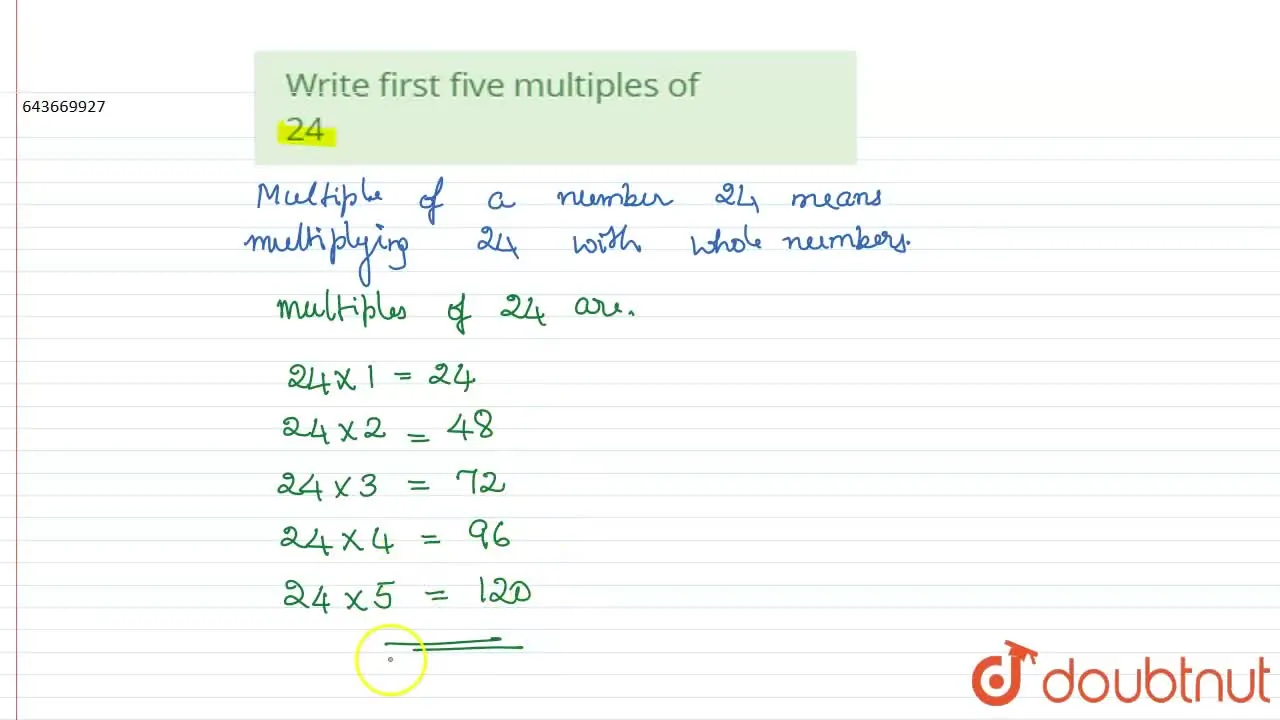 Write first five multiples of
24
643669927
Multiple of a number 24 means
multiplying 24 with whole numbers.
multiples of 24 are.
24 x 1 = 24
24 x 2 = 48
24 x 3 = 72
24 x 4 = 96
24 x 5 = 120
doubtnut